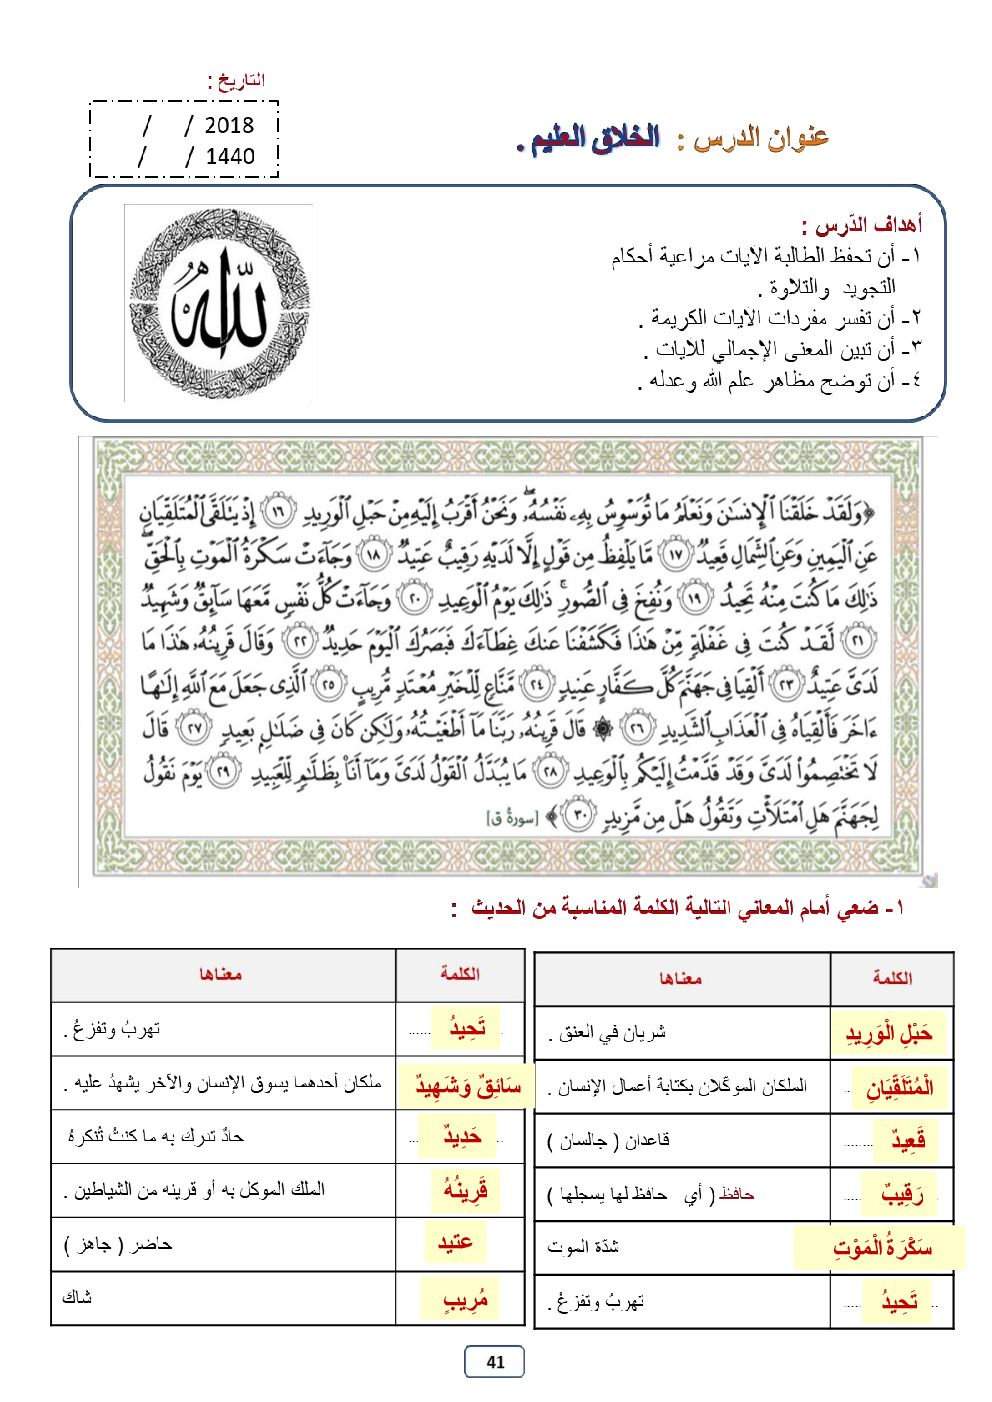 التاريخ :
/ / 2018
/ / 1440
عنوان الدرس : الخلاق العليم .
أهداف الدّرس :
١- أن تحفظ الطالبة الآيات مراعية أحكام
التجويد والتلاوة .
٢- أن تفسر مفردات الآيات الكريمة .
٣- أن تبين المعنى الإجمالي للآيات .
٤- أن توضح مظاهر علم الله وعدله .
الله
﴿وَلَقَدْ خَلَقْنَا ٱلْإِنسَٰنَ وَنَعْلَمُ مَا تُوَسْوِسُ بِهِۦ نَفْسُهُۥ ۖ وَنَحْنُ أَقْرَبُ إِلَيْهِ مِنْ حَبْلِ ٱلْوَرِيدِ ١٦ إِذْ يَتَلَقَّى ٱلْمُتَلَقِّيَانِ
عَنِ ٱلْيَمِينِ وَعَنِ ٱلشِّمَالِ قَعِيدٌ ١٧ مَّا يَلْفِظُ مِن قَوْلٍ إِلَّا لَدَيْهِ رَقِيبٌ عَتِيدٌ ١٨ وَجَآءَتْ سَكْرَةُ ٱلْمَوْتِ بِٱلْحَقِّ ۖ
ذَٰلِكَ مَا كُنتَ مِنْهُ تَحِيدُ ١٩ وَنُفِخَ فِى ٱلصُّورِ ۚ ذَٰلِكَ يَوْمُ ٱلْوَعِيدِ ٢٠ وَجَآءَتْ كُلُّ نَفْسٍ مَّعَهَا سَآئِقٌ وَشَهِيدٌ
٢١ لَّقَدْ كُنتَ فِى غَفْلَةٍ مِّنْ هَٰذَا فَكَشَفْنَا عَنكَ غِطَآءَكَ فَبَصَرُكَ ٱلْيَوْمَ حَدِيدٌ ٢٢ وَقَالَ قَرِينُهُۥ هَٰذَا مَا
لَدَىَّ عَتِيدٌ ٢٣ أَلْقِيَا فِى جَهَنَّمَ كُلَّ كَفَّارٍ عَنِيدٍ ٢٤ مَّنَّاعٍ لِّلْخَيْرِ مُعْتَدٍ مُّرِيبٍ ٢٥ ٱلَّذِى جَعَلَ مَعَ ٱللَّهِ إِلَٰهًا
ءَاخَرَ فَأَلْقِيَاهُ فِى ٱلْعَذَابِ ٱلشَّدِيدِ ٢٦ ۞ قَالَ قَرِينُهُۥ رَبَّنَا مَآ أَطْغَيْتُهُۥ وَلَٰكِن كَانَ فِى ضَلَٰلٍۭ بَعِيدٍ ٢٧ قَالَ
لَا تَخْتَصِمُوا۟ لَدَىَّ وَقَدْ قَدَّمْتُ إِلَيْكُم بِٱلْوَعِيدِ ٢٨ مَا يُبَدَّلُ ٱلْقَوْلُ لَدَىَّ وَمَآ أَنَا۠ بِظَلَّٰمٍ لِّلْعَبِيدِ ٢٩ يَوْمَ نَقُولُ
لِجَهَنَّمَ هَلِ ٱمْتَلَأْتِ وَتَقُولُ هَلْ مِن مَّزِيدٍ ٣٠﴾ [سورة ق]
١- ضعي أمام المعاني التالية الكلمة المناسبة من الحديث :
الكلمة معناها
حَبْلِ الْوَرِيدِ شريان في العنق .
الْمُتَلَقِّيَانِ الملكان الموكّلان بكتابة أعمال الإنسان .
قَعِيدٌ قاعدان ( جالسان )
رَقِيبٌ حافظ ( أي حافظ لها يسجلها )
سَكْرَةُ الْمَوْتِ شدّة الموت
تَحِيدُ تهربُ وتفزعُ .
الكلمة معناها
تَحِيدُ تهربُ وتفزعُ .
سَائِقٌ وَشَهِيدٌ ملكان أحدهما يسوق الإنسان والآخر يشهدُ عليه .
حَدِيدٌ حادٌ تدرك به ما كنتُ تُنكرهُ
قَرِينُهُ الملك الموكل به أو قرينه من الشياطين .
عتيد حاضر ( جاهز )
مُرِيبٍ شاك
41